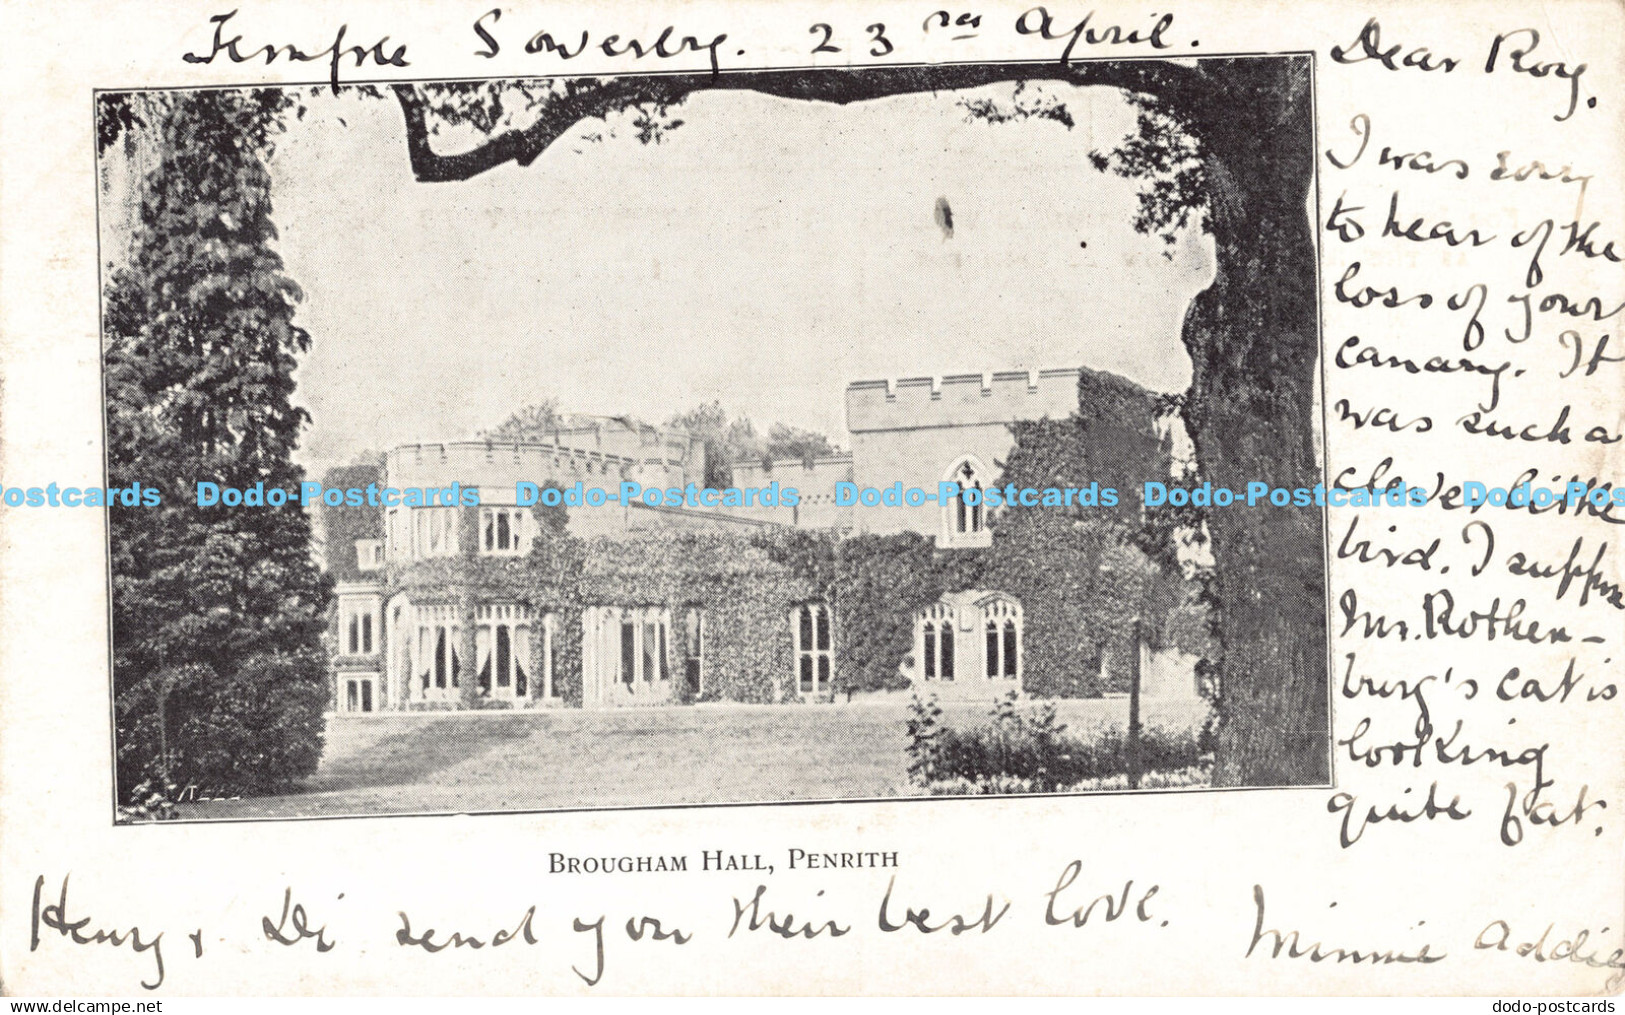 Temple Sowerby. 23rd April.
Dear Roy,
I was sorry
to hear of the
loss of your
canary. It
was such a
clever little
bird. I suppose
Mr. Rothen-
burg's cat is
looking
quite fat.
Dodo-Postcards Dodo-Postcards Dodo-Postcards Dodo-Postcards Dodo-Postcards
BROUGHAM HALL, PENRITH
Henry & Di send you their best love.
Minnie Addie
dodo-postcards